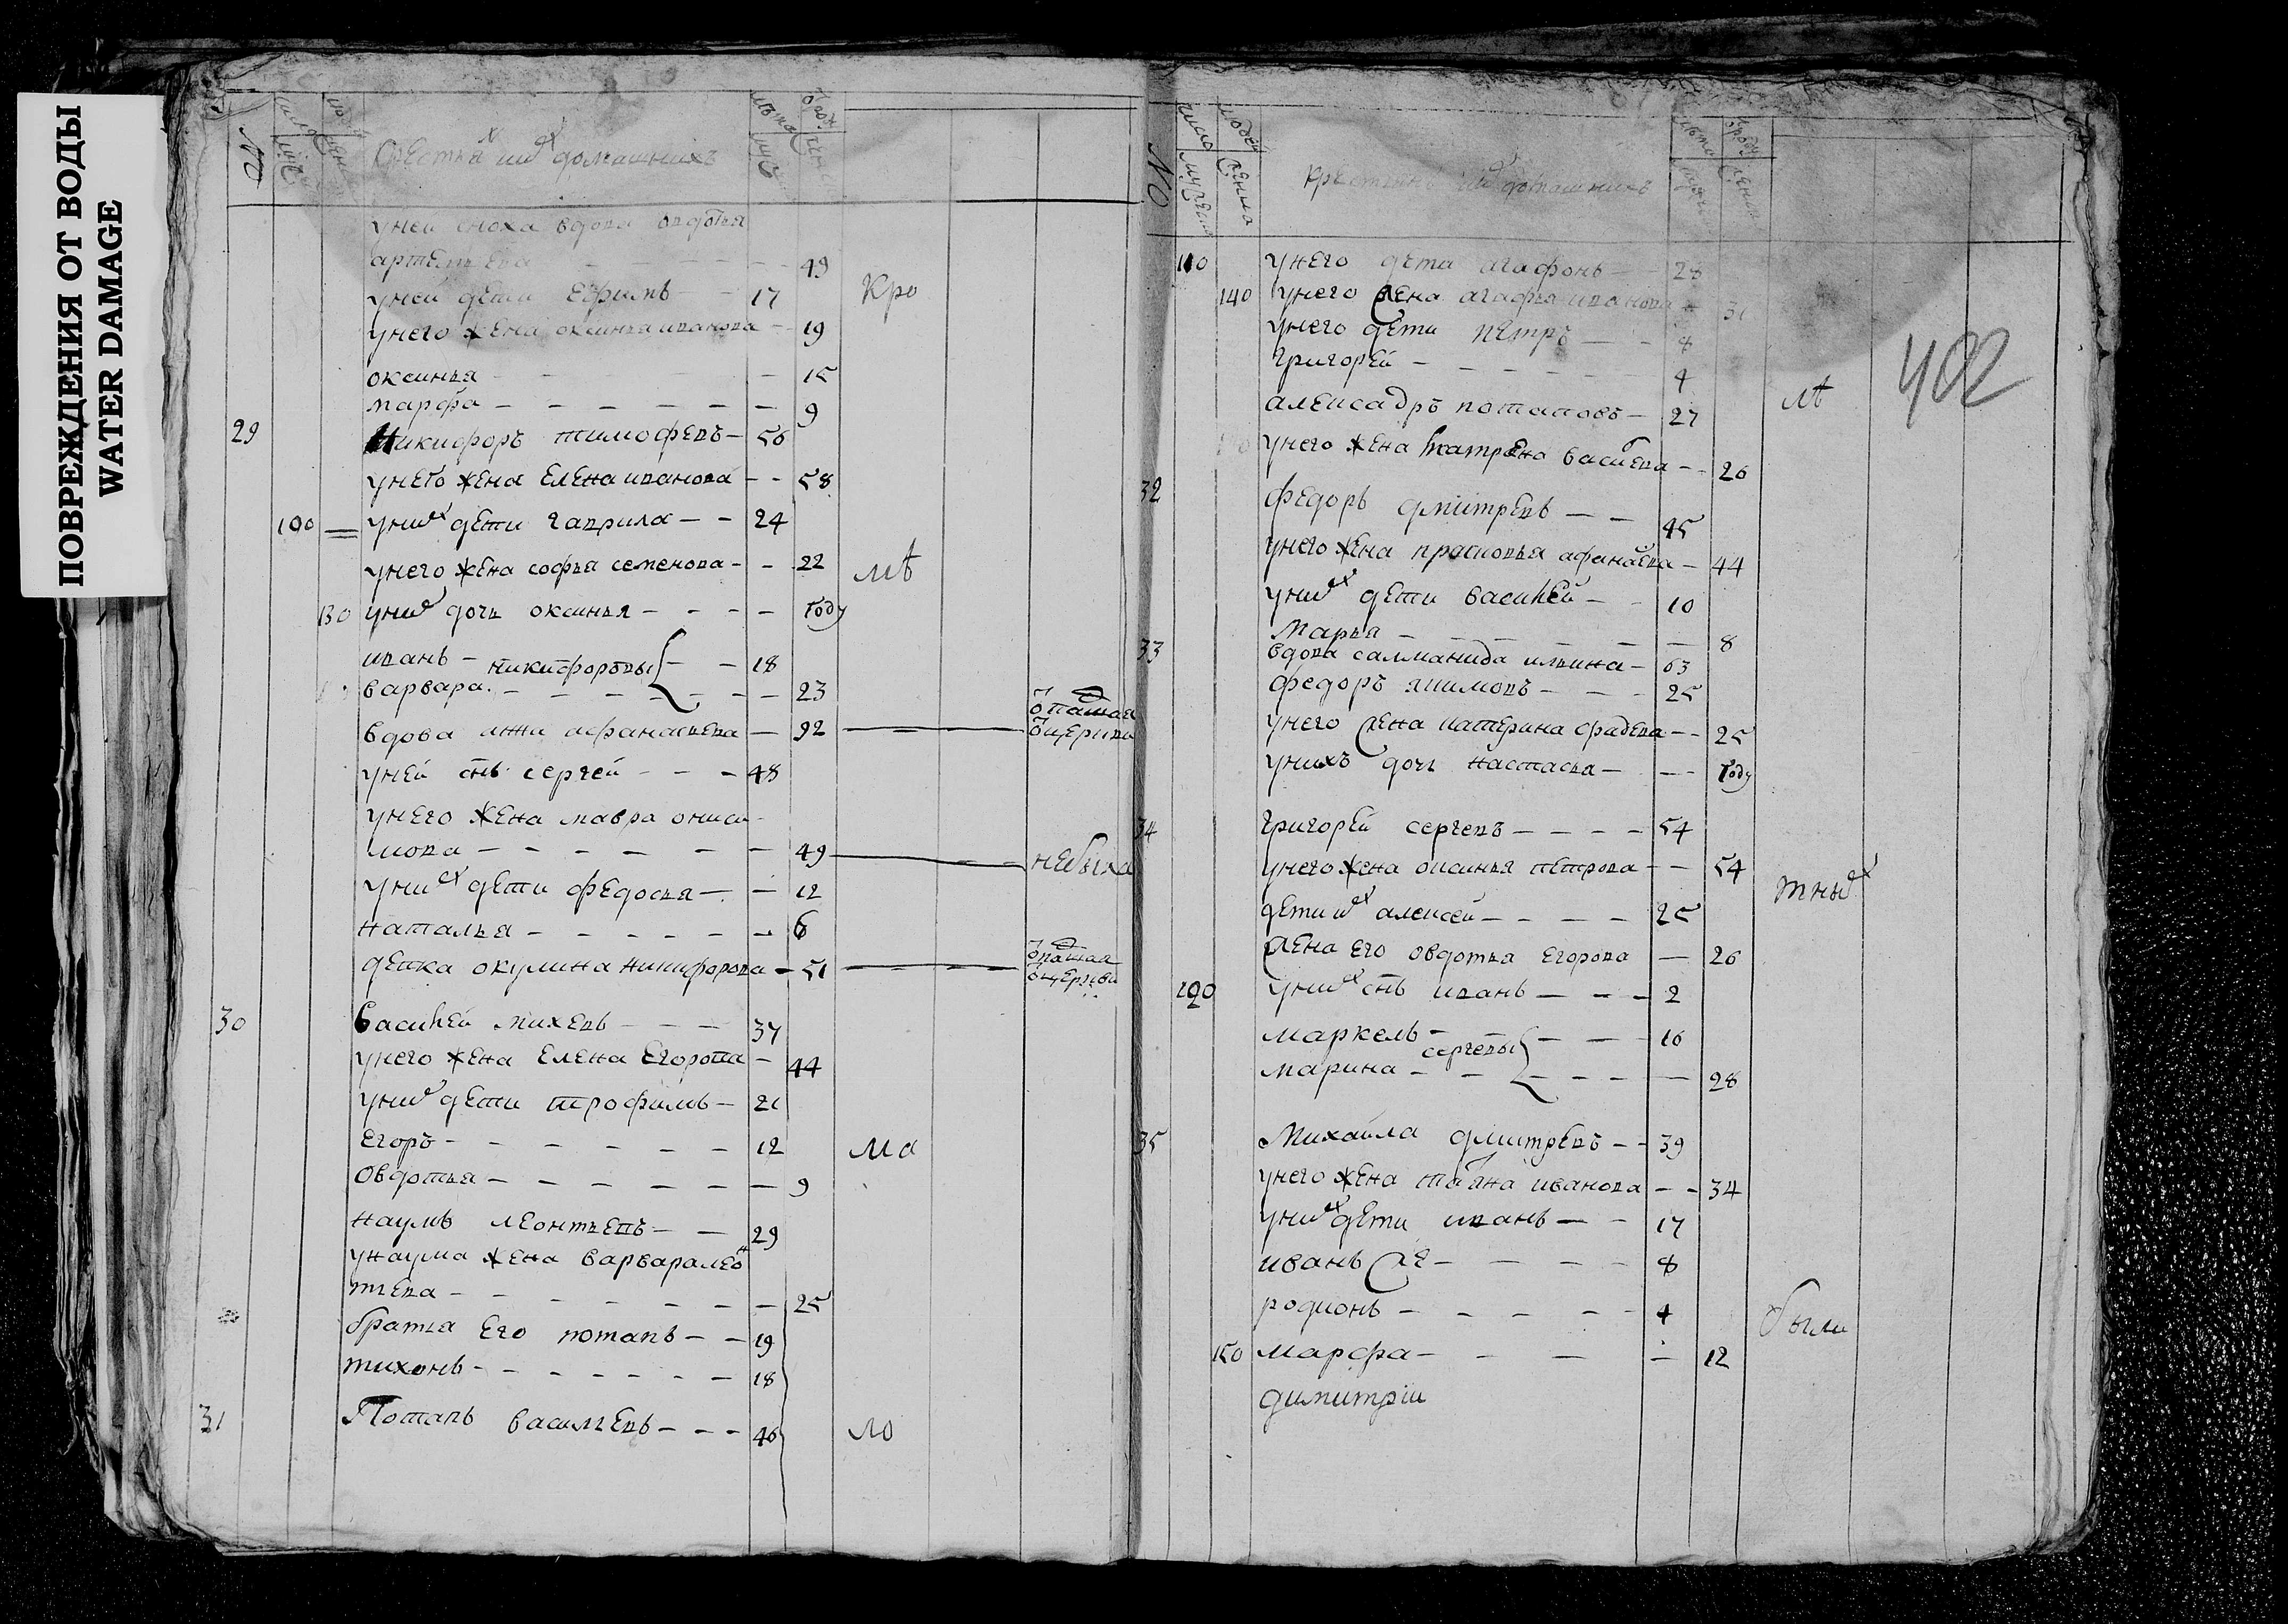 ПОВРЕЖДЕНИЯ ОТ ВОДЫ
WATER DAMAGE
№ число людей крестья их домашнихъ
уней сноха вдова овдотья
артемьева 49
уней дети ефимъ 17 Кро
унего жена оксинья иванова 19
оксинья 15
марфа 9
29 Никифоръ тимофевъ 56
унего жена елена иванова 58
100 уних дети гаврила 24
унего жена софья семенова 22 мѣ
130 уних дочь оксинья году
иванъ никифоровы 18
варвара 23
вдова афанасьева 92
уней снъ сергей 48
унего жена мавра ониси
мова 49 небыла
уних дети федосья 12
наталья 6
девка окулина никифорова 51
30 василей михевъ 37
унего жена елена егорова 44
уних дети трофимъ 21
егоръ 12 ма
овдотья 9
наумъ леонтьевъ 29
унаума жена варвара лео
тьева 25
братья его потапъ 19
тихонъ 18
31 Потапъ васильевъ 46 ло
№ число людей мужеска женска крестьянъ их домашнихъ
110 унего дети агафонъ 28
140 унего жена агафья иванова 31
унего дети петръ 8
григорей 4
алексадръ потаповъ 27 лѣ
402
унего жена катрена васиева 26
32 федоръ дмитревъ 45
унего жена прасковья афанаева 44
уних дети василей 10
марья 8
33 вдова салманида ильина 63
федоръ якимовъ 25
унего жена катерина фадева 25
унихъ дочь настасья году
34 григорей сергевъ 54
унего жена оксинья петрова 54
тных
дети их алексей 25
жена его овдотья егорова 26
190 уних снъ иванъ 2
маркелъ сергевы 16
марина 28
35 Михайла дмитревъ 39
унего жена татяна иванова 34
уних дети иванъ 17
иванъ же 8
родионъ 4 были
150 марфа 12
димитрии